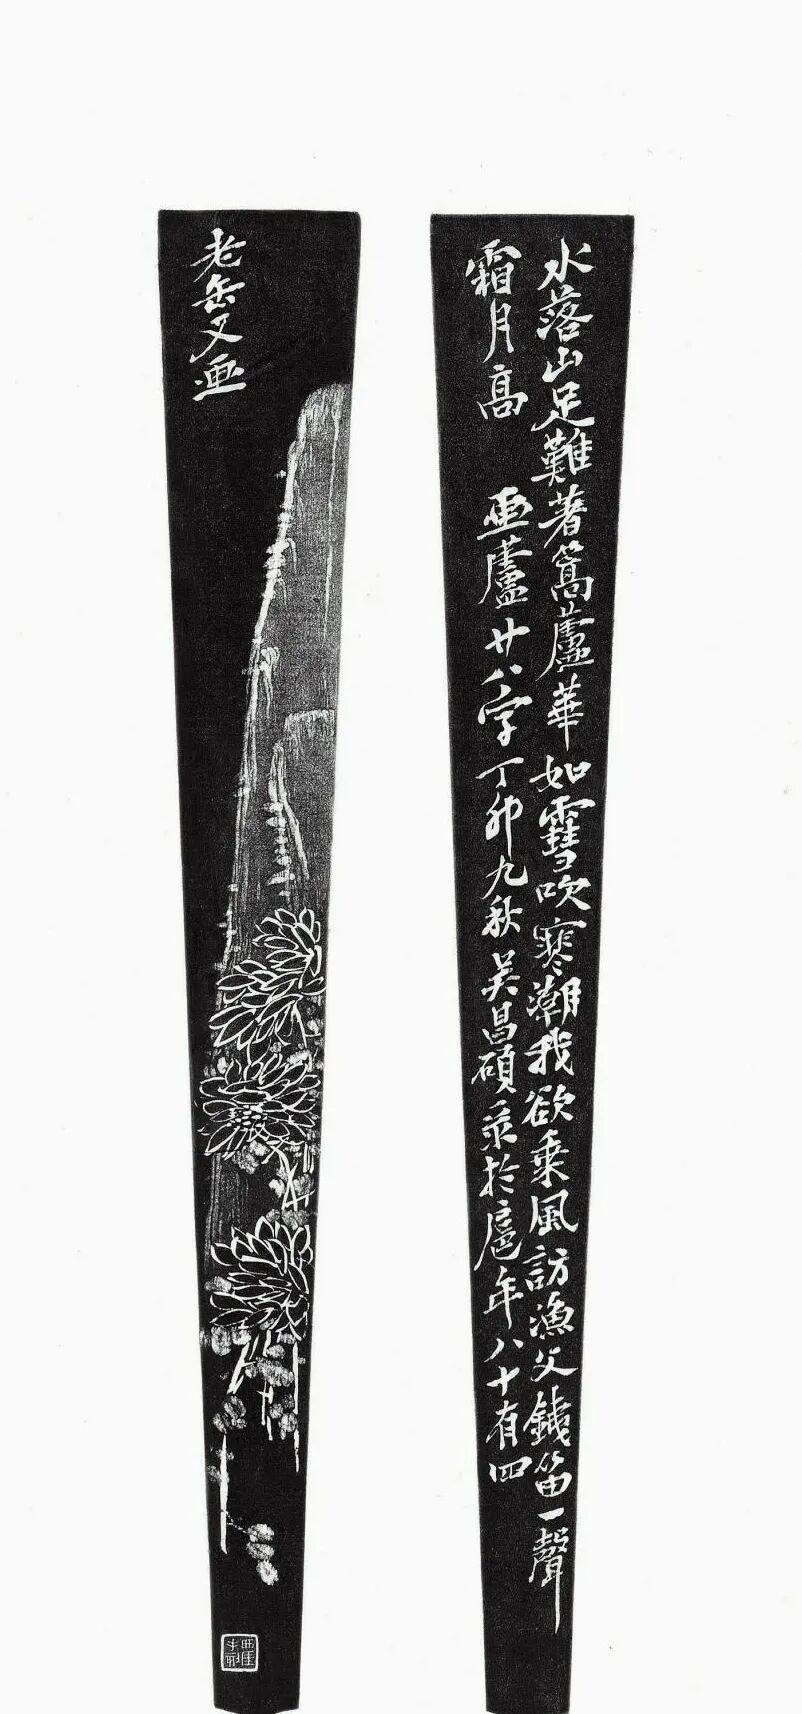 水落山足難著篙蘆華如雪吹寒潮我欲乘風訪漁父銕笛一聲
霜月高 画蘆廿八字丁卯九秋吴昌碩录於扈年八十有四
老缶又画
西厓手刻